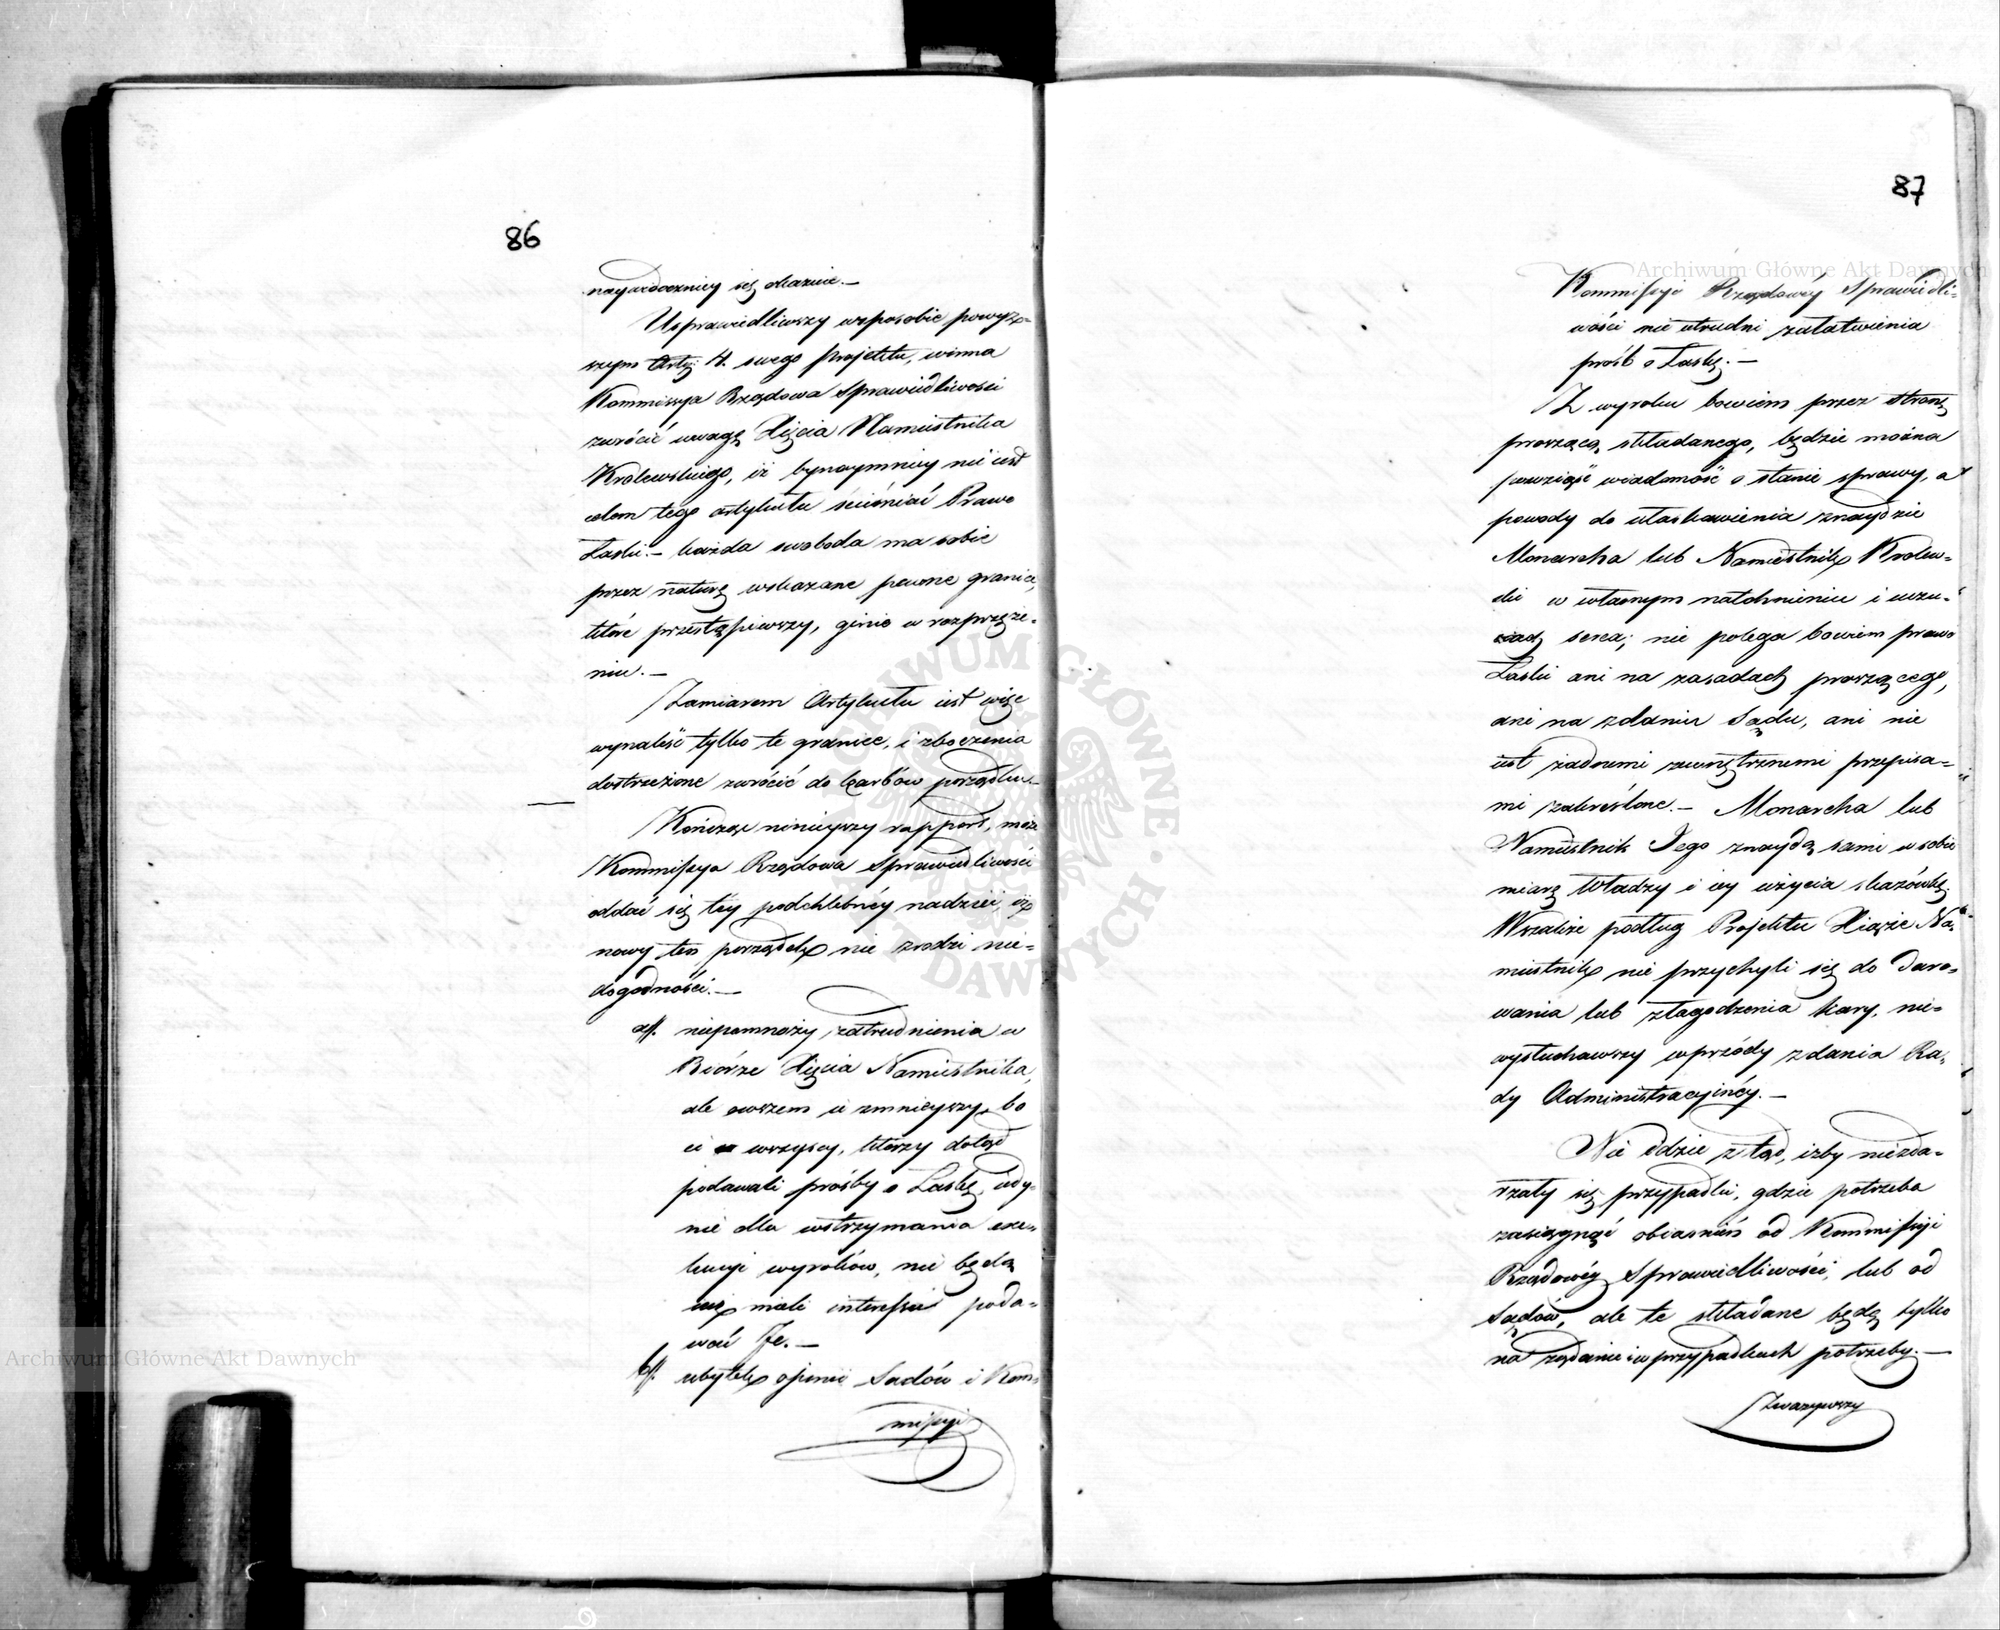 86
naywidoczniey się okazuie.—
Usprawiedliwszy wsposobie powyż-
szym Arty: 4. swego projektu, winna
Kommissya Rządowa Sprawiedliwości
zwrócić uwagę Xięcia Namiestnika
Królewskiego, iż bynaymniey nie iest
celem tego artykułu ścieśniać Prawo
Łaski.— każda swoboda ma sobie
przez naturę wskazane pewne granice,
które przestąpiwszy, ginie w rozprzęże-
niu.—
Zamiarem Artykułu iest więc
wynaleść tylko te granice, i zboczenia
dostrzeżone zwrócić do karbów porządku—
Kończąc ninieyszy rapport, może
Kommissya Rządowa Sprawiedliwości
oddać się téy podchlebnéy nadziei, iż
nowy ten porządek nie zrodzi nie-
dogodności.—
a/. niepomnoży zatrudnienia w
Biórze Xięcia Namiestnika,
ale owszem ie zmnieyszy, bo
ci wszyscy, którzy dotąd
podawali prośby o Łaskę, iedy-
nie dla wstrzymania exe-
kucyi wyroków, nie będą
iuż mieli interessu poda-
wać Je.—
b/. ubytek opinii Sądów i Kom-
missyi
87
Kommissyi Rządowéy Sprawiedli-
wości nie utrudni załatwienia
prośb o Łaskę.—
Z wyroku bowiem przez stronę
proszącą składanego, będzie można
powziąść wiadomość o stanie sprawy, a
powody do ułaskawienia znaydzie
Monarcha lub Namiestnik Królew-
ski w własnym natchnieniu i uczu-
ciach serca; nie polega bowiem prawo
Łaski ani na zasadach proszącego,
ani na zdaniu Sądu, ani nie
iest żadnemi zewnętrznemi przepisa-
mi zakreślone.— Monarcha lub
Namiestnik Jego znaydą sami w sobie
miarę Władzy i iey użycia skazówkę.
Wszakże podług Projektu Xiąże Na-
miestnik nie przychyli się do daro-
wania lub złagodzenia kary, nie-
wysłuchawszy wprzódy zdania Ra-
dy Administracyinéy.—
Nie idzie ztąd, iżby niezda-
rzały się przypadki, gdzie potrzeba
zasięgnąć obiaśnień od Kommissyi
Rządowéy Sprawiedliwości, lub od
Sądów, ale te składane będą tylko
na żądanie i w przypadkach potrzeby.—
Zważywszy
Archiwum Główne Akt Dawnych
Archiwum Główne Akt Dawnych
ARCHIWUM GŁÓWNE AKT DAWNYCH